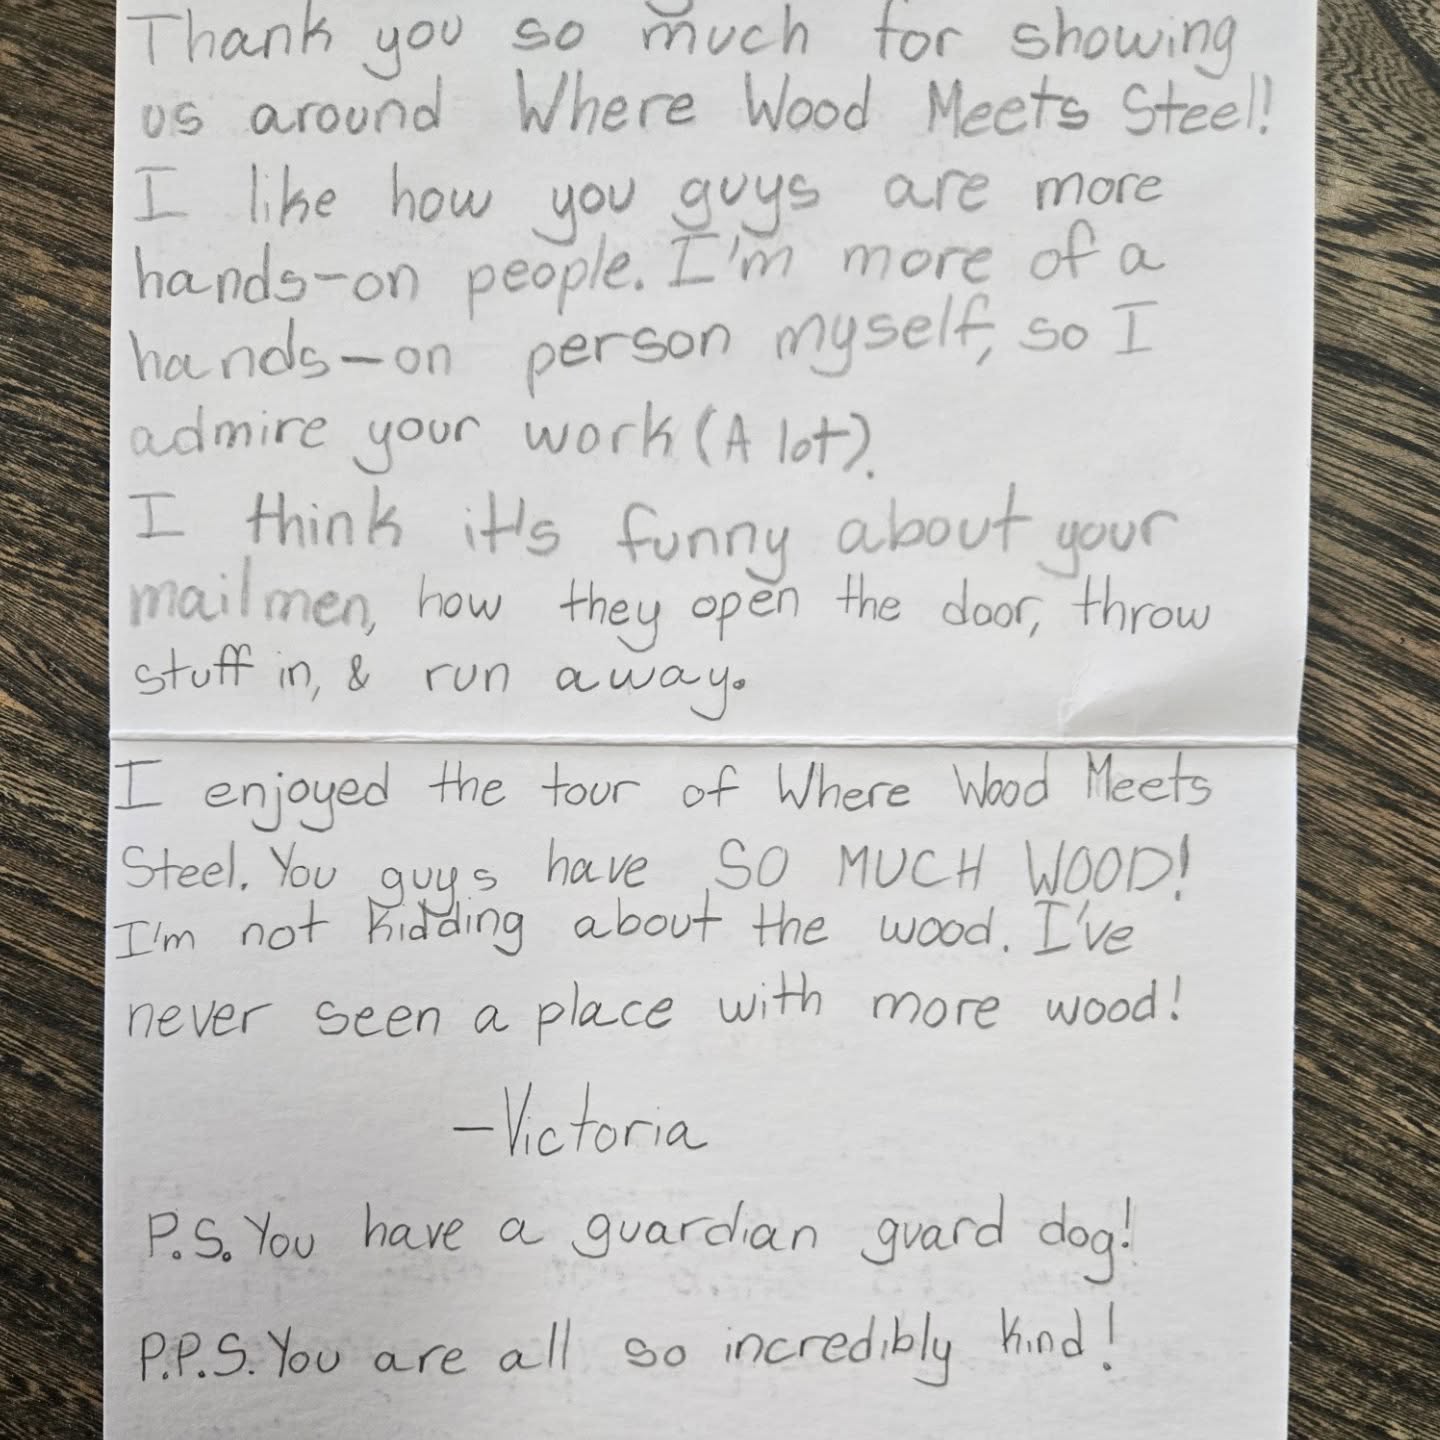 Thank you so much for showing
us around Where Wood Meets Steel!
I like how you guys are more
hands-on people. I'm more of a
hands-on person myself, so I
admire your work (A lot).
I think it's funny about your
mailmen, how they open the door, throw
stuff in, & run away.
I enjoyed the tour of Where Wood Meets
Steel. You guys have SO MUCH WOOD!
I'm not kidding about the wood. I've
never seen a place with more wood!
-Victoria
P.S. You have a guardian guard dog!
P.P.S. You are all so incredibly kind!